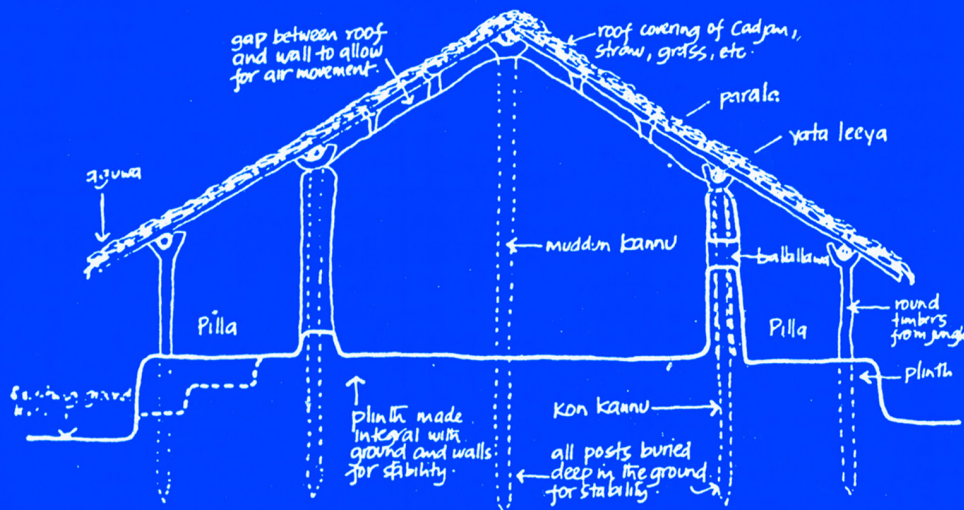 gap between roof
and wall to allow
for air movement.
roof covering of Cadjan,
straw, grass, etc.
parala
yata leeya
muddun kannu
Pilla
Pilla
round
timbers
from jungle
plinth
plinth made
integral with
ground and walls
for stability.
kon kannu
all posts buried
deep in the ground
for stability.